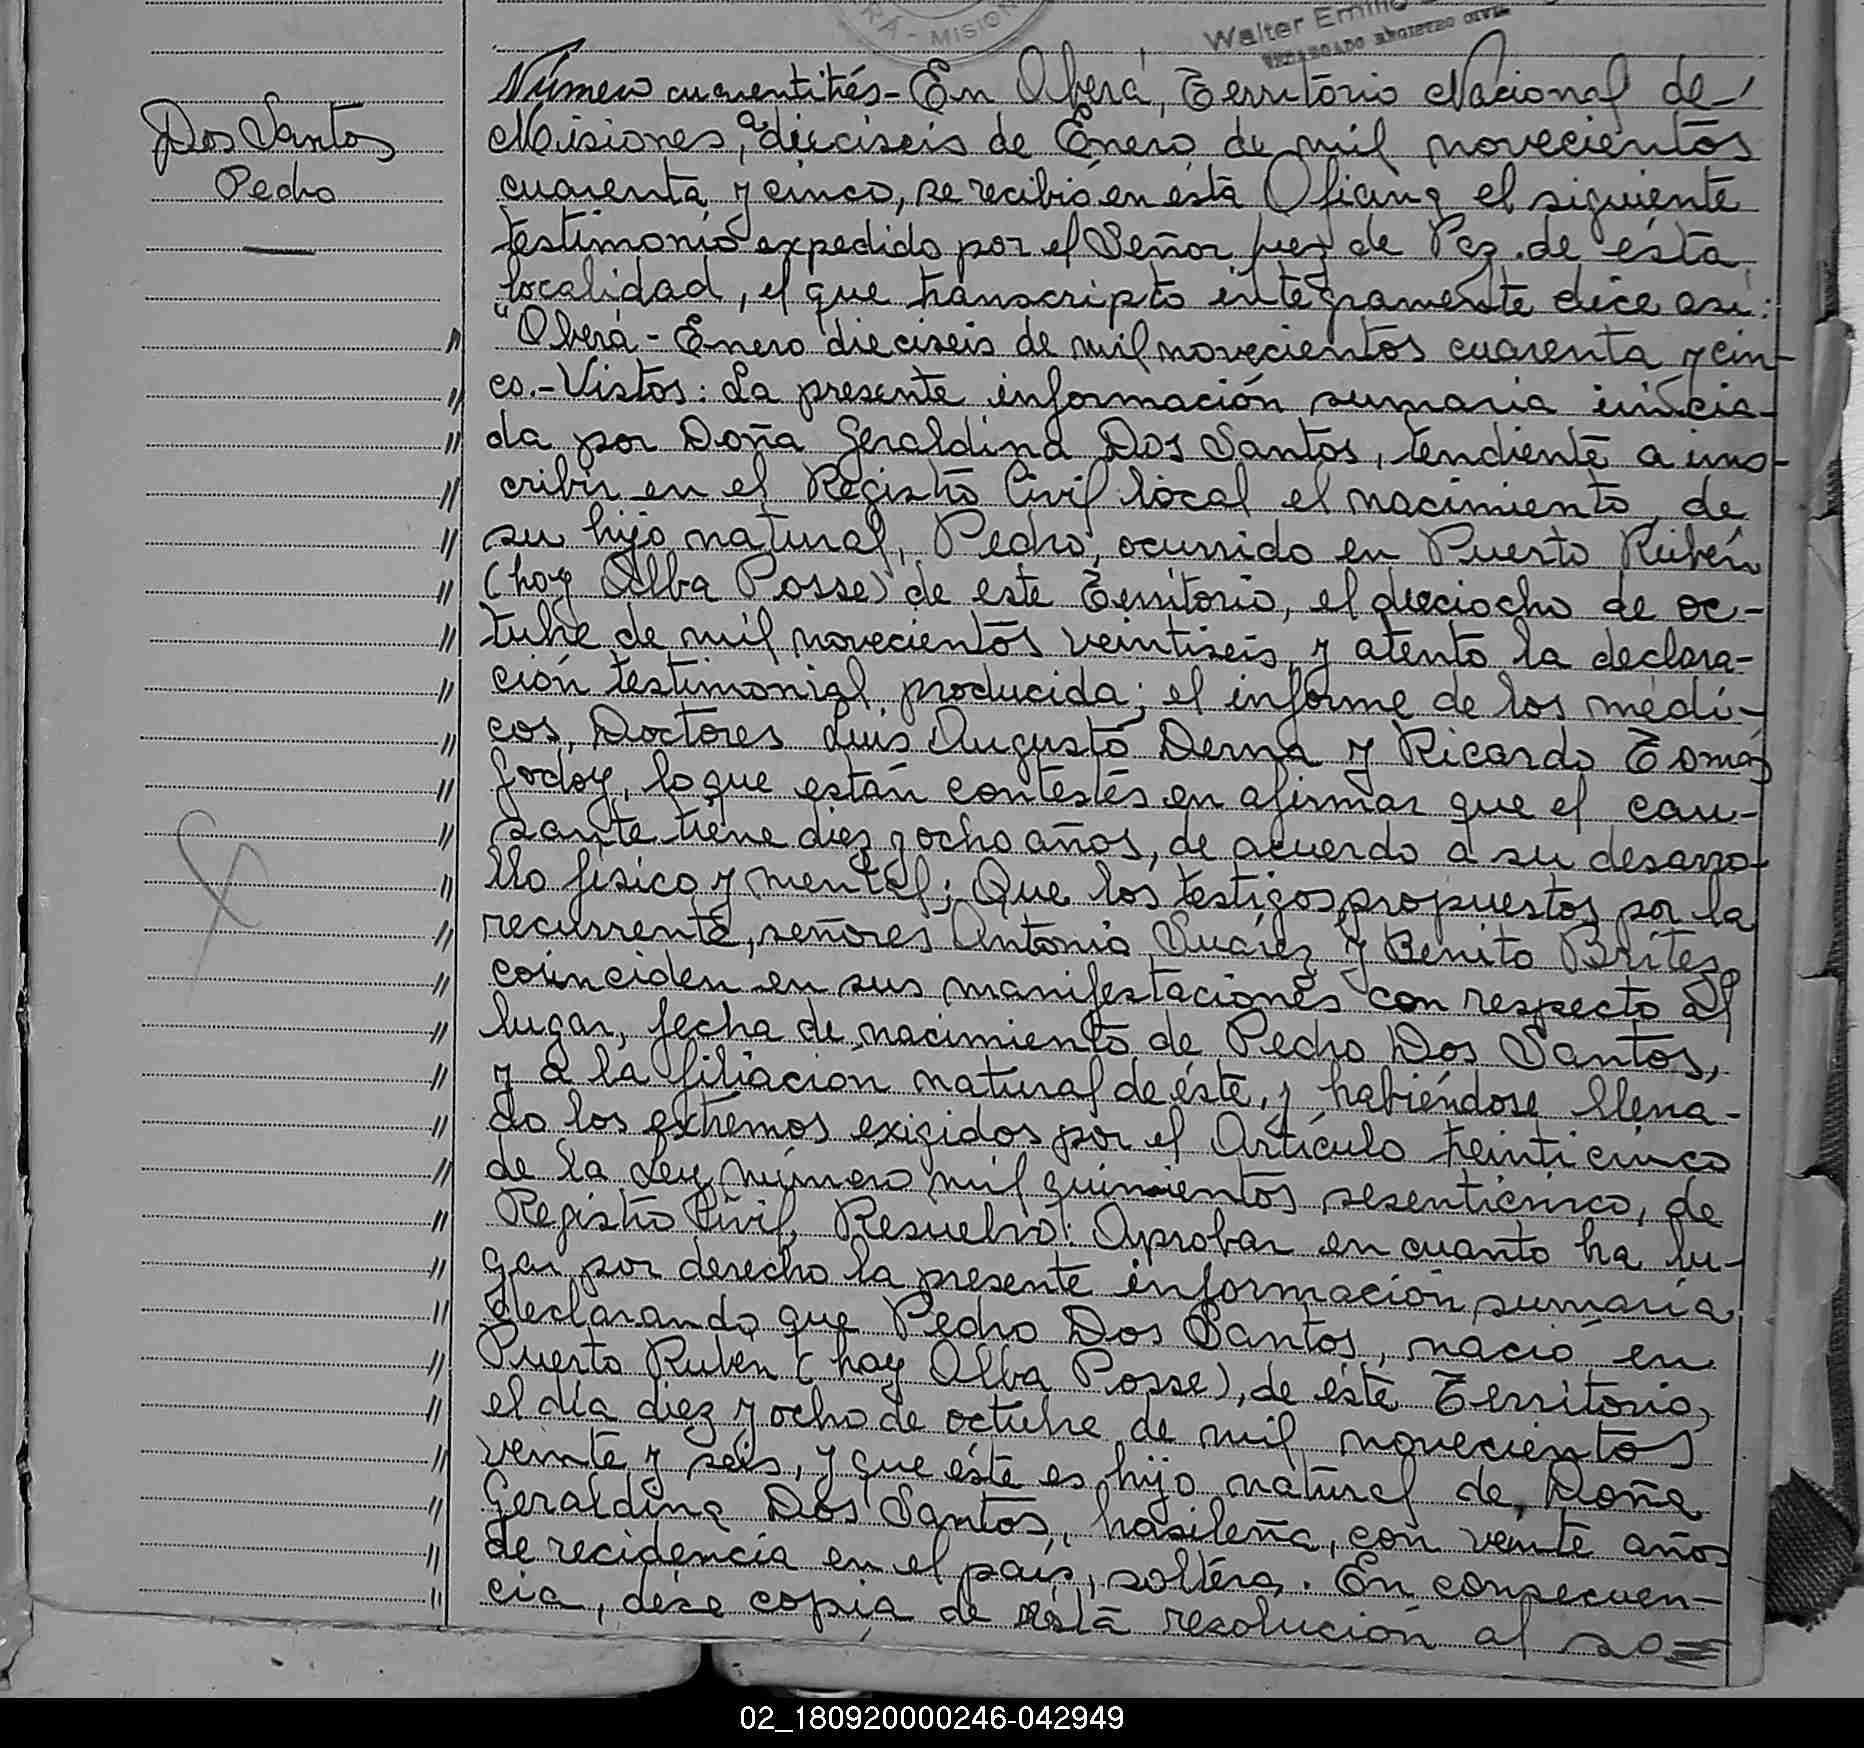 RÁ - MISION
Walter Emilio
ENCARGADO REGISTRO CIVIL
Dos Santos
Pedro
Número cuarentitrés - En Oberá, Territorio Nacional de
Misiones, a dieciseis de Enero de mil novecientos
cuarenta y cinco, se recibió en ésta Oficina el siguiente
testimonio expedido por el Señor Juez de Paz de ésta
localidad, el que transcripto íntegramente dice así:
"Oberá - Enero dieciseis de mil novecientos cuarenta y cin-
" co.- Vistos: La presente información sumaria inicia-
" da por Doña Geraldina Dos Santos, tendiente a ins-
" cribir en el Registro Civil local el nacimiento de
" su hijo natural, Pedro, ocurrido en Puerto Rubén
" (hoy Alba Posse) de este Territorio, el dieciocho de oc-
" tubre de mil novecientos veintiseis, y atento la declara-
" ción testimonial producida; el informe de los médi-
" cos, Doctores Luis Augusto Derna y Ricardo Tomás
" Godoy, lo que están contestes en afirmar que el cau-
" sante tiene diez y ocho años, de acuerdo a su desarro-
" llo físico y mental; Que los testigos propuestos por la
" recurrente, señores Antonio Suárez y Benito Brites
" coinciden en sus manifestaciones con respecto al
" lugar, fecha de nacimiento de Pedro Dos Santos,
" y a la filiación natural de éste, y habiéndose llena-
" do los extremos exigidos por el Artículo treinticinco
" de la Ley número mil quinientos sesenticinco, de
" Registro Civil, Resuelvo: Aprobar en cuanto ha lu-
" gar por derecho la presente información sumaria
" declarando que Pedro Dos Santos, nació en
" Puerto Rubén (hoy Alba Posse), de éste Territorio,
" el día diez y ocho de octubre de mil novecientos
" veinte y seis, y que éste es hijo natural de Doña
" Geraldina Dos Santos, brasileña, con veinte años
" de recidencia en el país, soltera. En consecuen-
" cia, dése copia de ésta resolución al so=
02_180920000246-042949